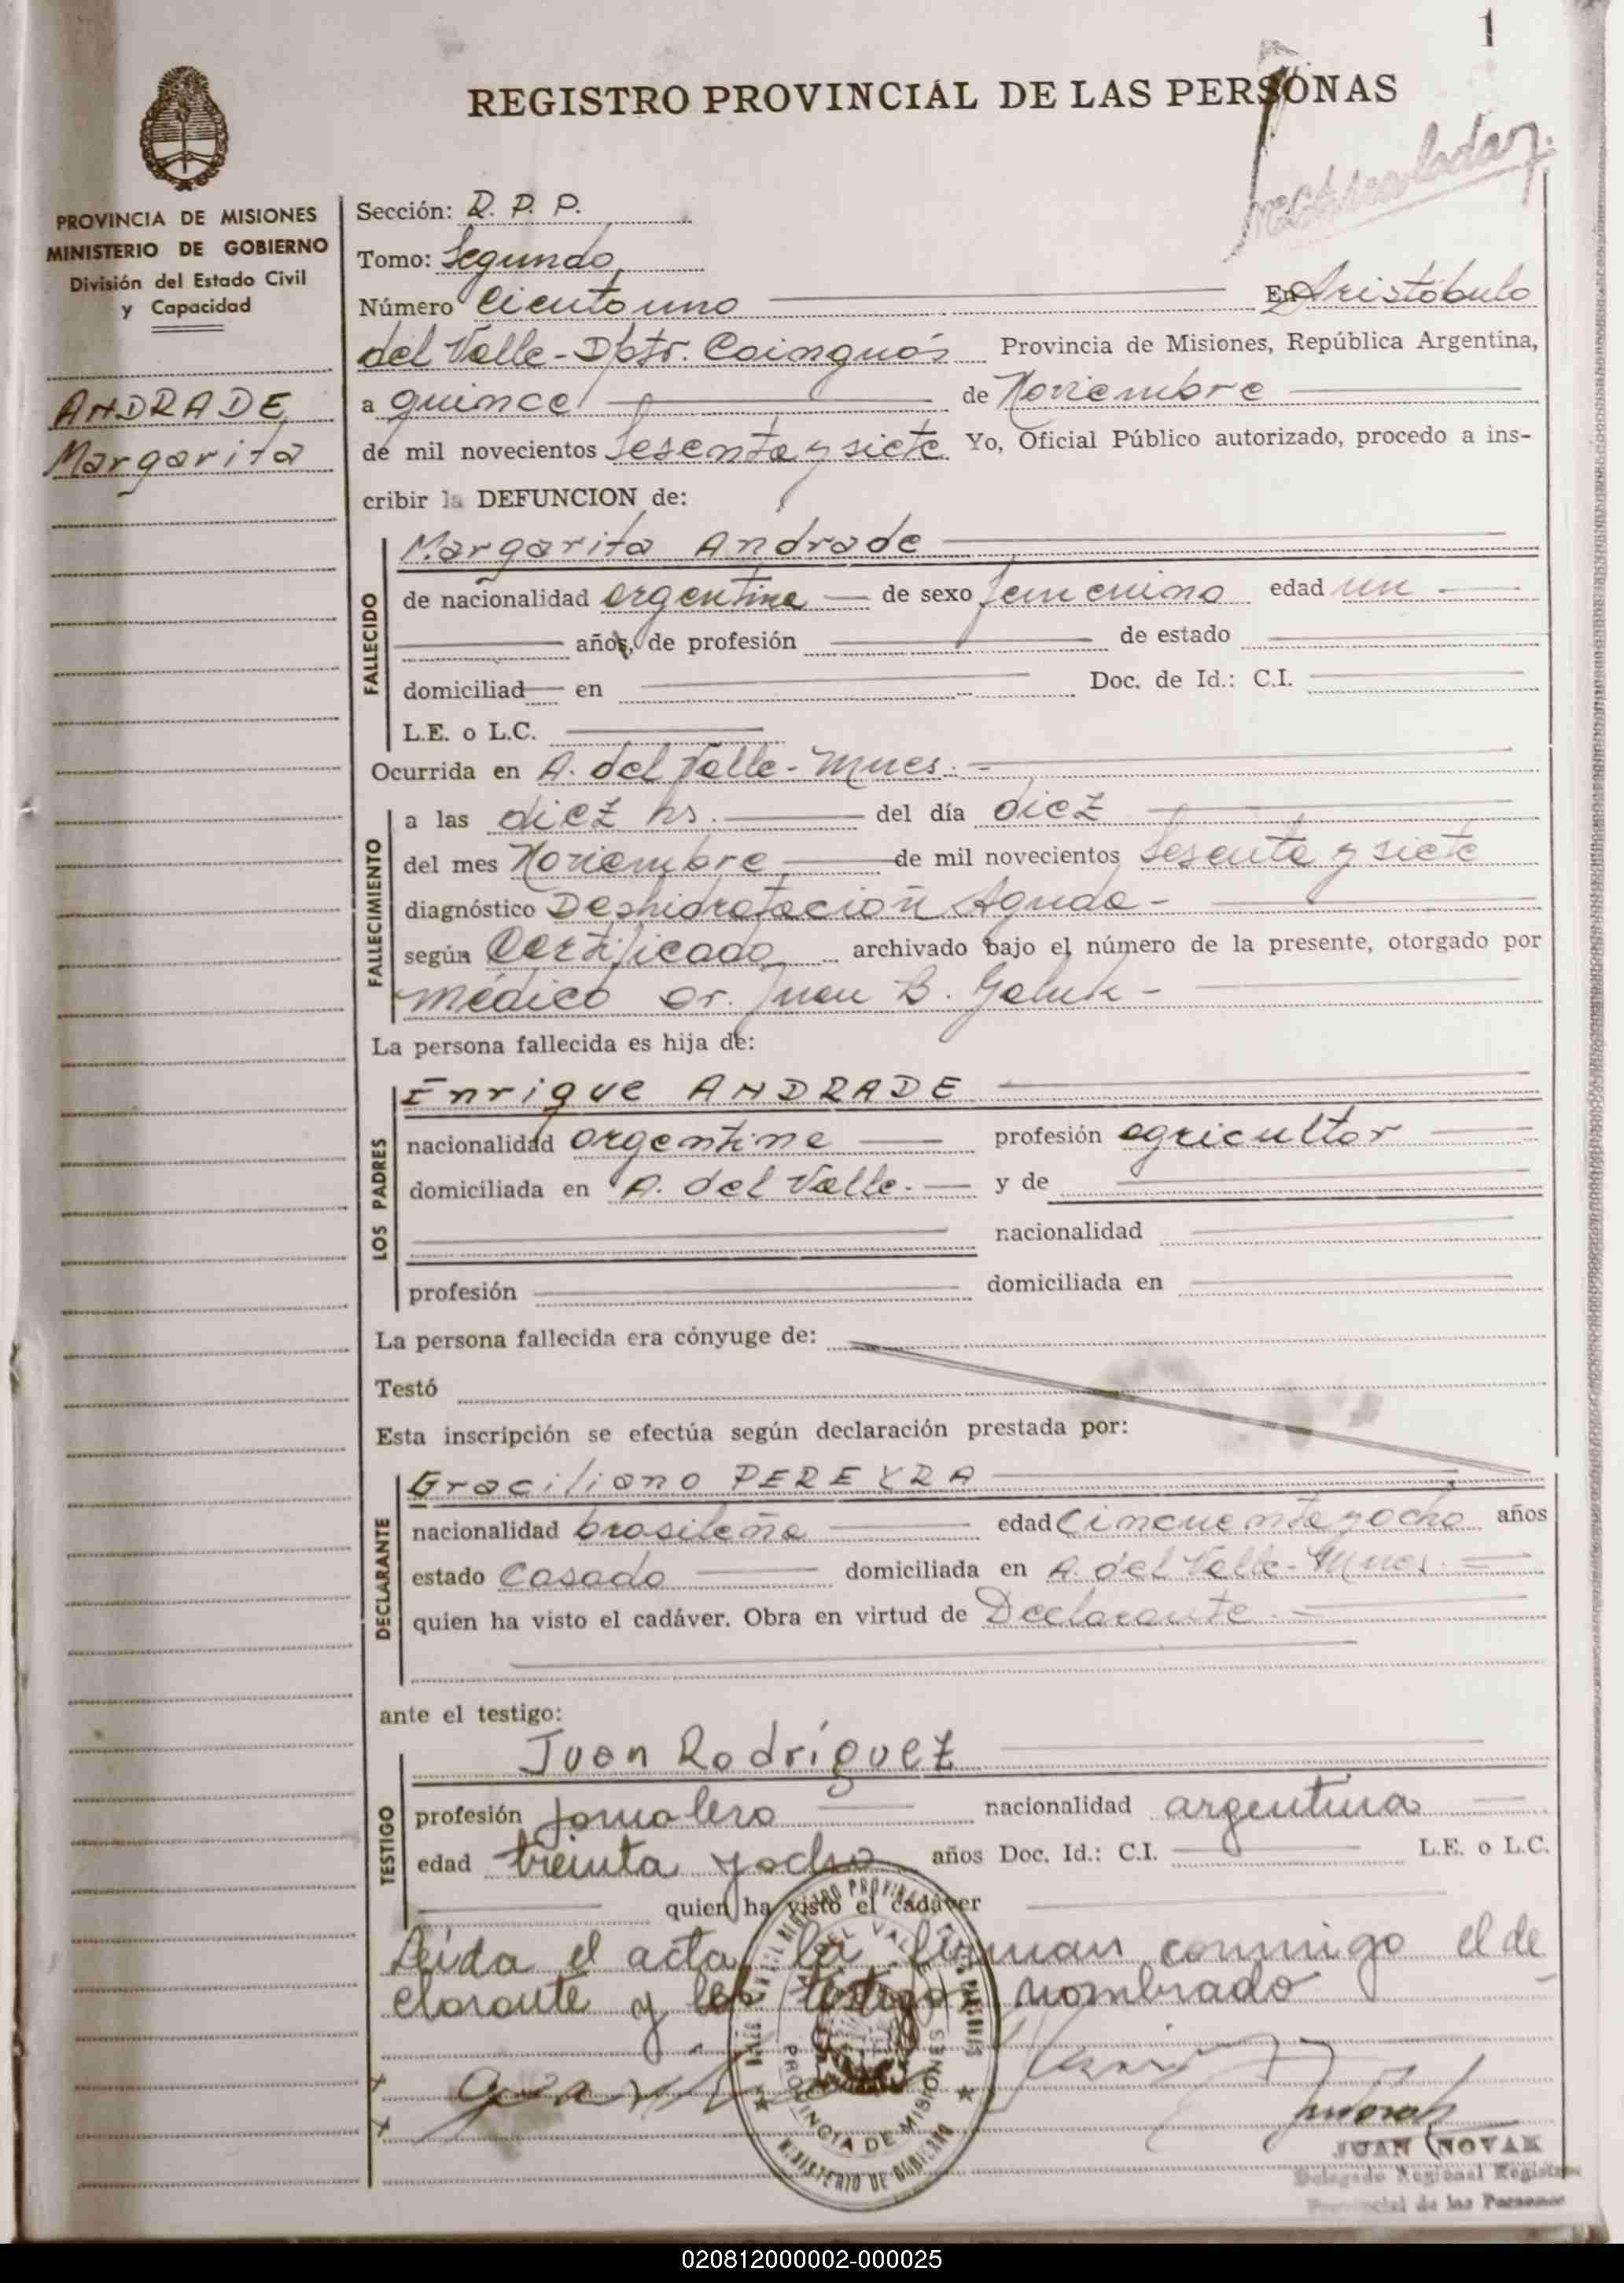 1
REGISTRO PROVINCIAL DE LAS PERSONAS
PROVINCIA DE MISIONES
MINISTERIO DE GOBIERNO
División del Estado Civil
y Capacidad
ANDRADE
Margarita
Sección: R. P. P.
Tomo: Segundo
Número Ciento uno En Aristóbulo
del Valle - Dpto. Cainguás Provincia de Misiones, República Argentina,
a quince de Noviembre
de mil novecientos Sesenta y siete Yo, Oficial Público autorizado, procedo a ins-
cribir la DEFUNCION de:
FALLECIDO
Margarita Andrade
de nacionalidad argentina de sexo femenino edad un
años, de profesión de estado
domiciliad en Doc. de Id.: C.I.
L.E. o L.C.
Ocurrida en A. del Valle - Mnes.
FALLECIMIENTO
a las diez hs. del día diez
del mes Noviembre de mil novecientos Sesenta y siete
diagnóstico Deshidratación Aguda -
según Certificado archivado bajo el número de la presente, otorgado por
médico Dr. Juan B. Goluk -
La persona fallecida es hija de:
LOS PADRES
Enrique ANDRADE
nacionalidad argentina profesión agricultor
domiciliada en A. del Valle. y de
nacionalidad
profesión domiciliada en
La persona fallecida era cónyuge de:
Testó
Esta inscripción se efectúa según declaración prestada por:
DECLARANTE
Graciliano PEREYRA
nacionalidad brasileña edad Cincuenta y ocho años
estado Casado domiciliada en A. del Valle - Mnes.
quien ha visto el cadáver. Obra en virtud de Declarante.
ante el testigo:
TESTIGO
Juan Rodríguez
profesión Jornalero nacionalidad argentina
edad treinta y ocho años Doc. Id.: C.I. L.E. o L.C.
quien ha visto el cadáver
Leida el acta la firman conmigo el de
clarante y el testigo nombrado
PROVINCIA DE MISIONES
MINISTERIO DE GOBIERNO
JUAN NOVAK
Delegado Regional Registro
Provincial de las Personas
020812000002-000025